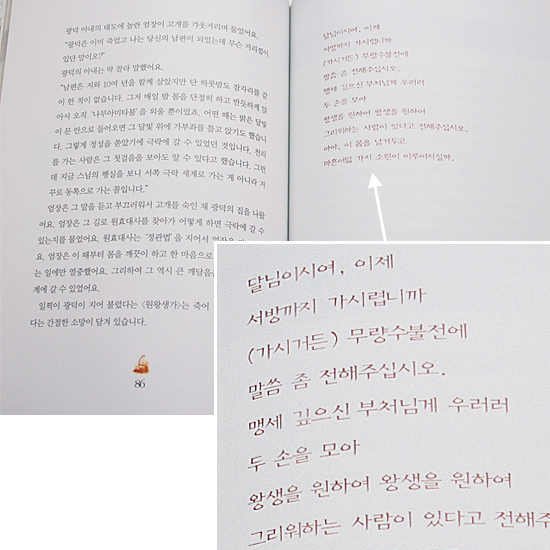 광덕 아내의 태도에 놀란 엄장이 고개를 갸웃거리며 물었어요.
"광덕은 이미 죽었고 나는 당신의 남편이 되었는데 무슨 거리낌이
있단 말이오?"
광덕의 아내는 딱 잘라 말했어요.
"남편은 저와 10여 년을 함께 살았지만 단 하룻밤도 잠자리를 같
이 한 적이 없습니다. 그저 매일 밤 몸을 단정히 하고 반듯하게 앉
아서 오직 '나무아미타불'을 외울 뿐이었죠. 어떤 때는 밝은 달빛
이 문 안으로 들어오면 그 달빛 위에 가부좌를 틀고 앉기도 했습니
다. 그렇게 정성을 쏟았기에 극락에 갈 수 있었던 것입니다. 천리
를 가는 사람은 그 첫걸음을 보아도 알 수 있다고 했습니다. 그런
데 지금 스님의 행실을 보니 서쪽 극락 세계로 가는 게 아니라 거
꾸로 동쪽으로 가는 꼴입니다."
엄장은 그 말을 듣고 부끄러워서 고개를 숙인 채 광덕의 집을 나왔
어요. 엄장은 그 길로 원효대사를 찾아가 어떻게 하면 극락에 갈 수
있는지를 물었어요. 원효대사는 '정관법'을 지어서
엄장은 이 때부터 몸을 깨끗이 하고 한 마음으로
는 일에만 열중했어요. 그리하여 그 역시 큰 깨달음을
계에 갈 수 있었어요.
일찍이 광덕이 지어 불렀다는 〈원왕생가〉는 죽어
다는 간절한 소망이 담겨 있습니다.
86
달님이시여, 이제
서방까지 가시렵니까
(가시거든) 무량수불전에
말씀 좀 전해주십시오.
맹세 깊으신 부처님께 우러러
두 손을 모아
왕생을 원하여 왕생을 원하여
그리워하는 사람이 있다고 전해주십시오.
아아, 이 몸을 남겨두고
마흔여덟 가지 소원이 이루어지실까.
달님이시여, 이제
서방까지 가시렵니까
(가시거든) 무량수불전에
말씀 좀 전해주십시오.
맹세 깊으신 부처님게 우러러
두 손을 모아
왕생을 원하여 왕생을 원하여
그리워하는 사람이 있다고 전해주